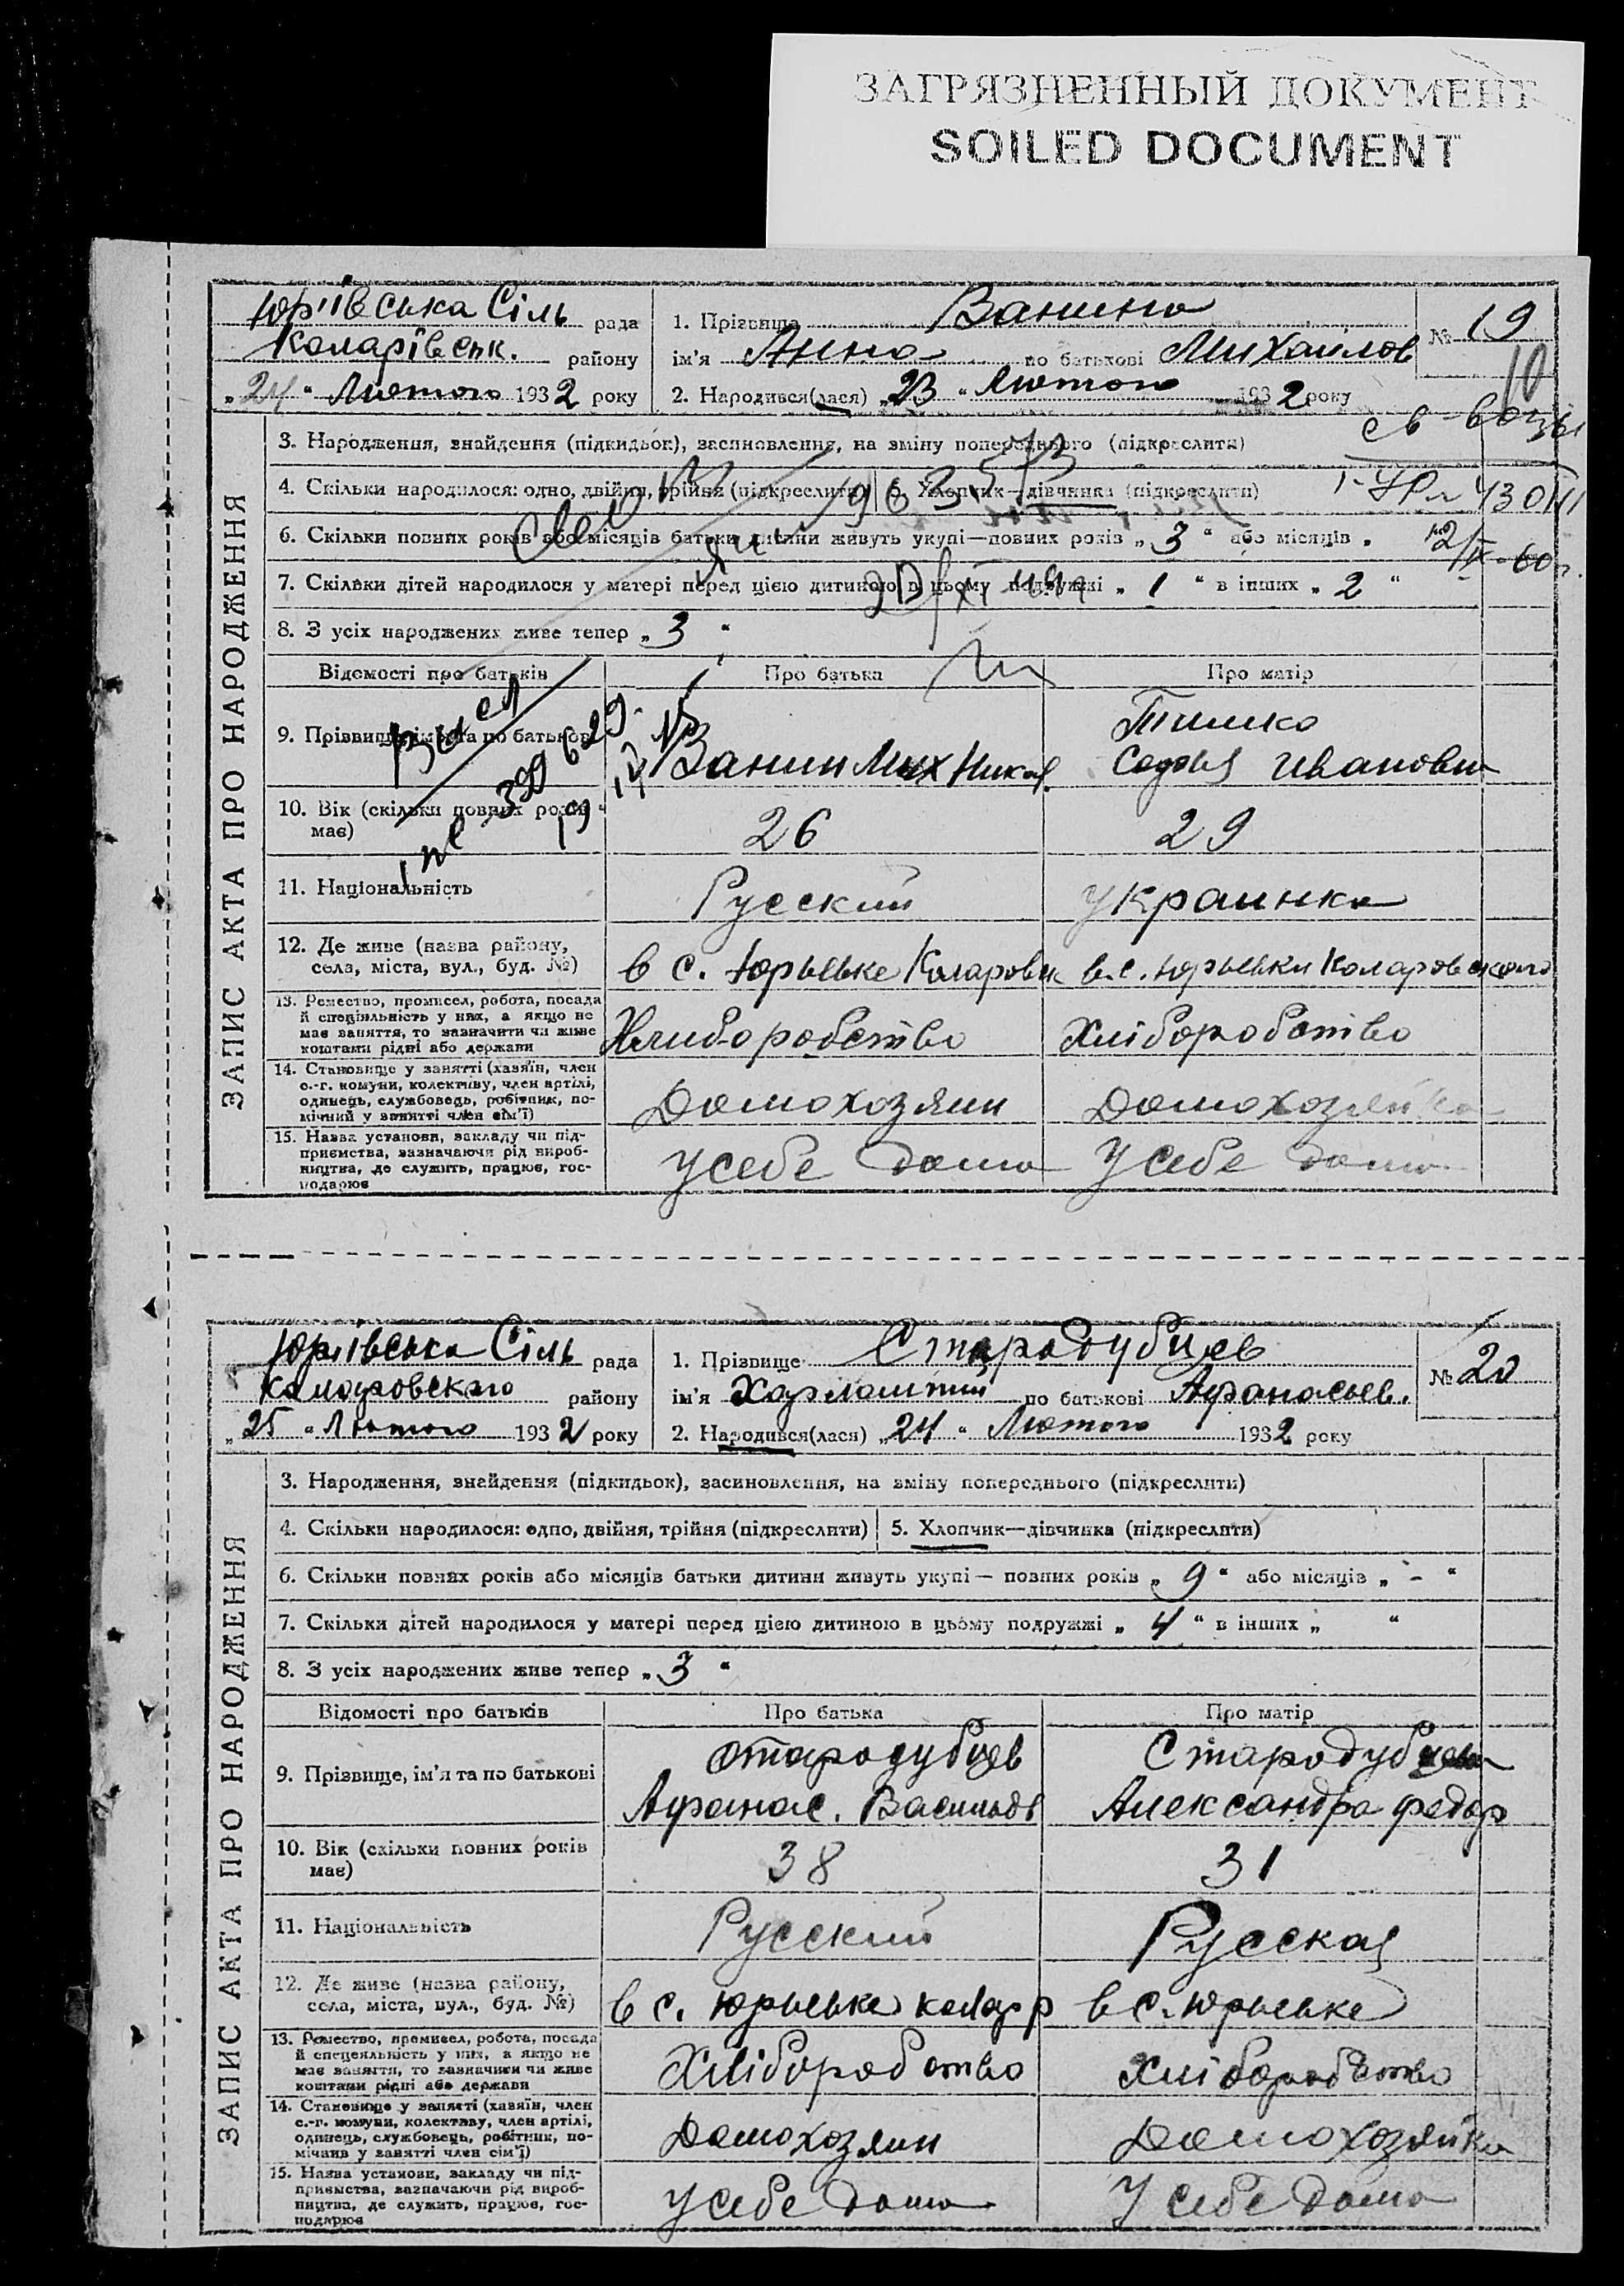 ЗАГРЯЗНЕННЫЙ ДОКУМЕНТ
SOILED DOCUMENT
ЗАПИС АКТА ПРО НАРОДЖЕННЯ
Юріївська Сіль рада
Коларівськ. району
„24“ Лютого 1932 року
1. Прізвище Ванина
ім'я Анна по батькові Михайлов
2. Народився(лася) „23“ Лютого 1932 року
№ 19
10
3. Народження, знайдення (підкидьок), засиновлення, на зміну попереднього (підкреслити)
4. Скільки народилося: одно, двійня, трійня (підкреслити) 5. Хлопчик—дівчинка (підкреслити)
6. Скільки повних років або місяців батьки дитини живуть укупі—повних років „3“ або місяців „
12/IX-60г.
7. Скільки дітей народилося у матері перед цією дитиною в цьому подружжі „1“ в інших „2“
8. З усіх народжених живе тепер „3“
Відомості про батьків Про батька Про матір
9. Прізвище, ім'я та по батькові
Ванин Мих Никол.
Тишко
Софья Ивановн
10. Вік (скільки повних років має) 26 29
11. Національність Русский Украинка
12. Де живе (назва району, села, міста, вул., буд. №) в с. Юрьевке Коларовск в с. Юрьевки Коларовского
13. Ремество, промисел, робота, посада
й спеціяльність у них, а якщо не
має заняття, то зазначити чи живе
коштами рідні або держави
Хлиборобство Хліборобство
14. Становище у занятті (хазяїн, член
с.-г. комуни, колективу, член артілі,
одинець, службовець, робітник, по-
мічний у занятті член сім'ї)
Домохозяин Домохозяйка
15. Назва установи, закладу чи під-
приємства, зазначаючи рід вироб-
ництва, де служить, працює, гос-
подарює
У себе дома У себе дома
ЗАПИС АКТА ПРО НАРОДЖЕННЯ
Юріївська Сіль рада
Коларовского району
„25“ Лютого 1932 року
1. Прізвище Стародубцев
ім'я Харлампий по батькові Афанасьев.
2. Народився(лася) „24“ Лютого 1932 року
№ 20
3. Народження, знайдення (підкидьок), засиновлення, на зміну попереднього (підкреслити)
4. Скільки народилося: одно, двійня, трійня (підкреслити) 5. Хлопчик—дівчинка (підкреслити)
6. Скільки повних років або місяців батьки дитини живуть укупі — повних років „9“ або місяців „-“
7. Скільки дітей народилося у матері перед цією дитиною в цьому подружжі „4“ в інших „ “
8. З усіх народжених живе тепер „3“
Відомості про батьків Про батька Про матір
9. Прізвище, ім'я та по батькові
Стародубцев
Афанас. Васильев
Стародубцева
Александра Федор
10. Вік (скільки повних років має) 38 31
11. Національність Русский Русская
12. Де живе (назва району, села, міста, вул., буд. №) в с. Юрьевке Колар в с. Юрьевке
13. Ремество, промисел, робота, посада
й спеціяльність у них, а якщо не
має заняття, то зазначити чи живе
коштами рідні або держави
Хліборобство Хліборобство
14. Становище у занятті (хазяїн, член
с.-г. комуни, колективу, член артілі,
одинець, службовець, робітник, по-
мічний у занятті член сім'ї)
Домохозяин Домохозяйка
15. Назва установи, закладу чи під-
приємства, зазначаючи рід вироб-
ництва, де служить, працює, гос-
подарює
У себе дома У себе дома